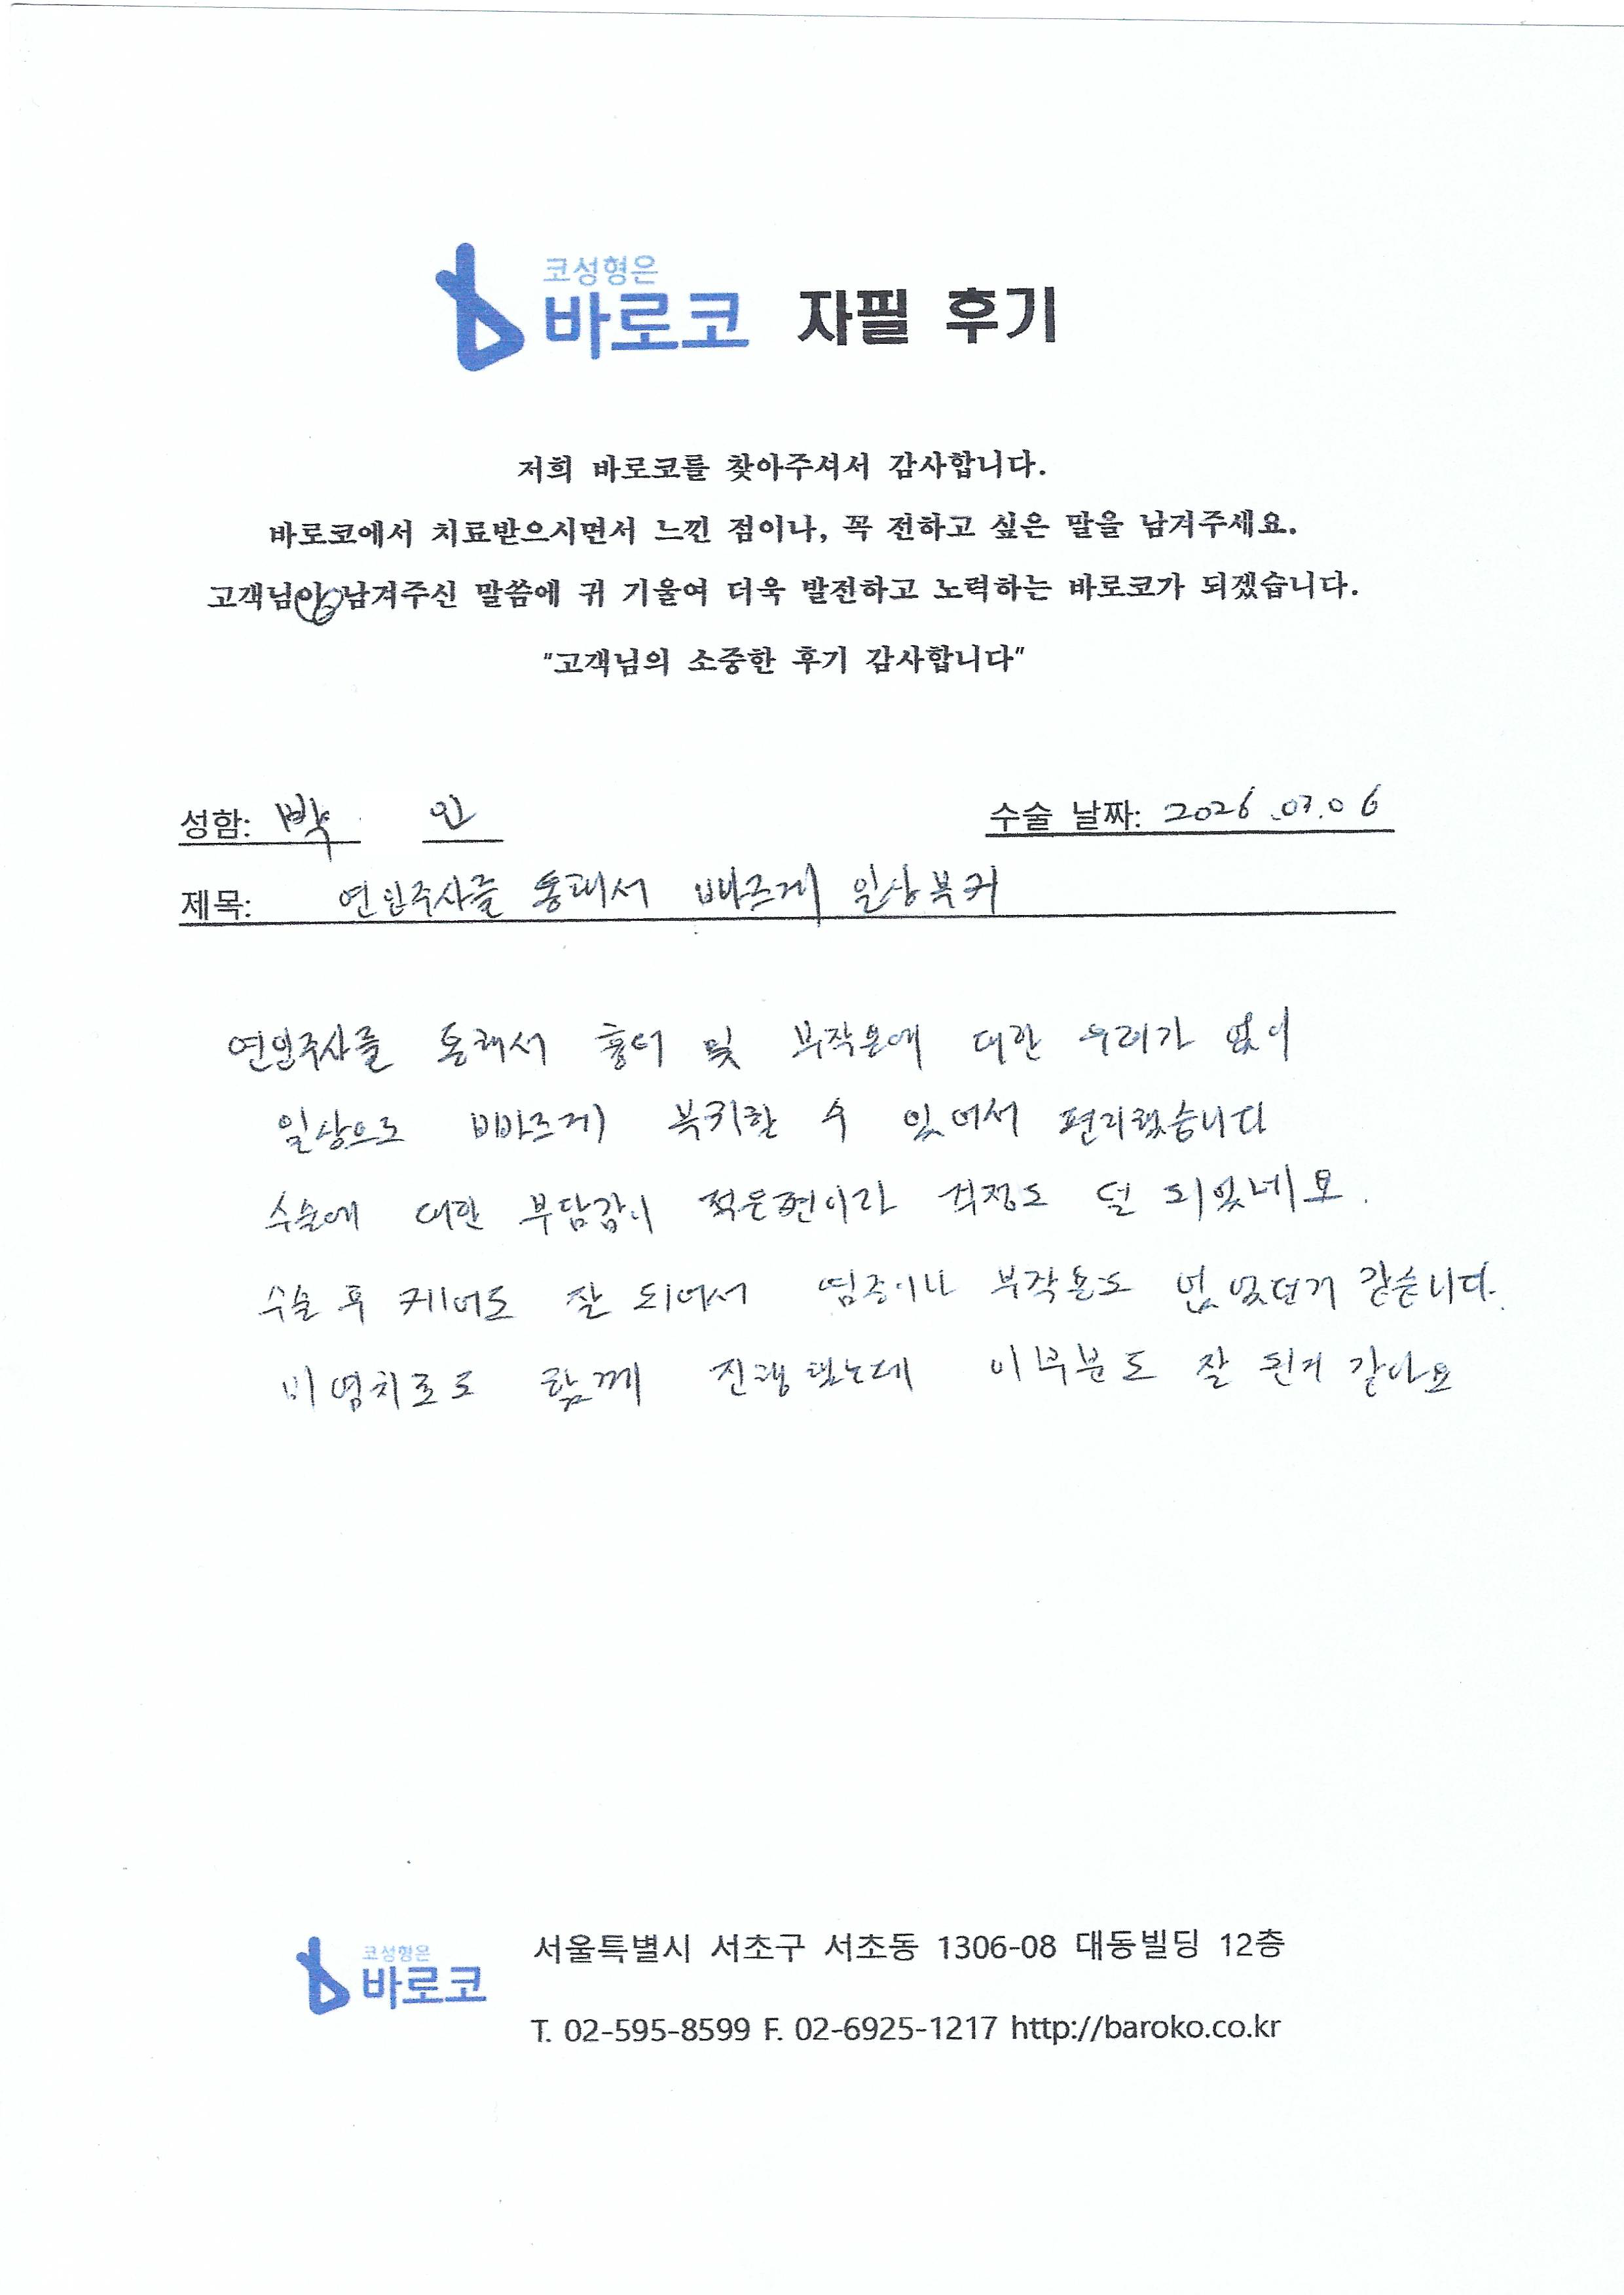 코성형은
바로코 자필 후기
저희 바로코를 찾아주셔서 감사합니다.
바로코에서 치료받으시면서 느낀 점이나, 꼭 전하고 싶은 말을 남겨주세요.
고객님이 남겨주신 말씀에 귀 기울여 더욱 발전하고 노력하는 바로코가 되겠습니다.
"고객님의 소중한 후기 감사합니다"
성함: 박 인 수술 날짜: 2026.07.06
제목: 연인주사를 통해서 빠르게 일상복귀
연인주사를 통해서 흉터 및 부작용에 대한 우려가 없이
일상으로 빠르게 복귀할 수 있어서 편리했습니다
수술에 대한 부담감이 적은편이라 걱정도 덜 되었네요.
수술 후 케어도 잘 되어서 염증이나 부작용도 없었던거 같습니다.
비염치료도 함께 진행했는데 이부분도 잘 된거 같아요
코성형은
바로코
서울특별시 서초구 서초동 1306-08 대동빌딩 12층
T. 02-595-8599 F. 02-6925-1217 http://baroko.co.kr